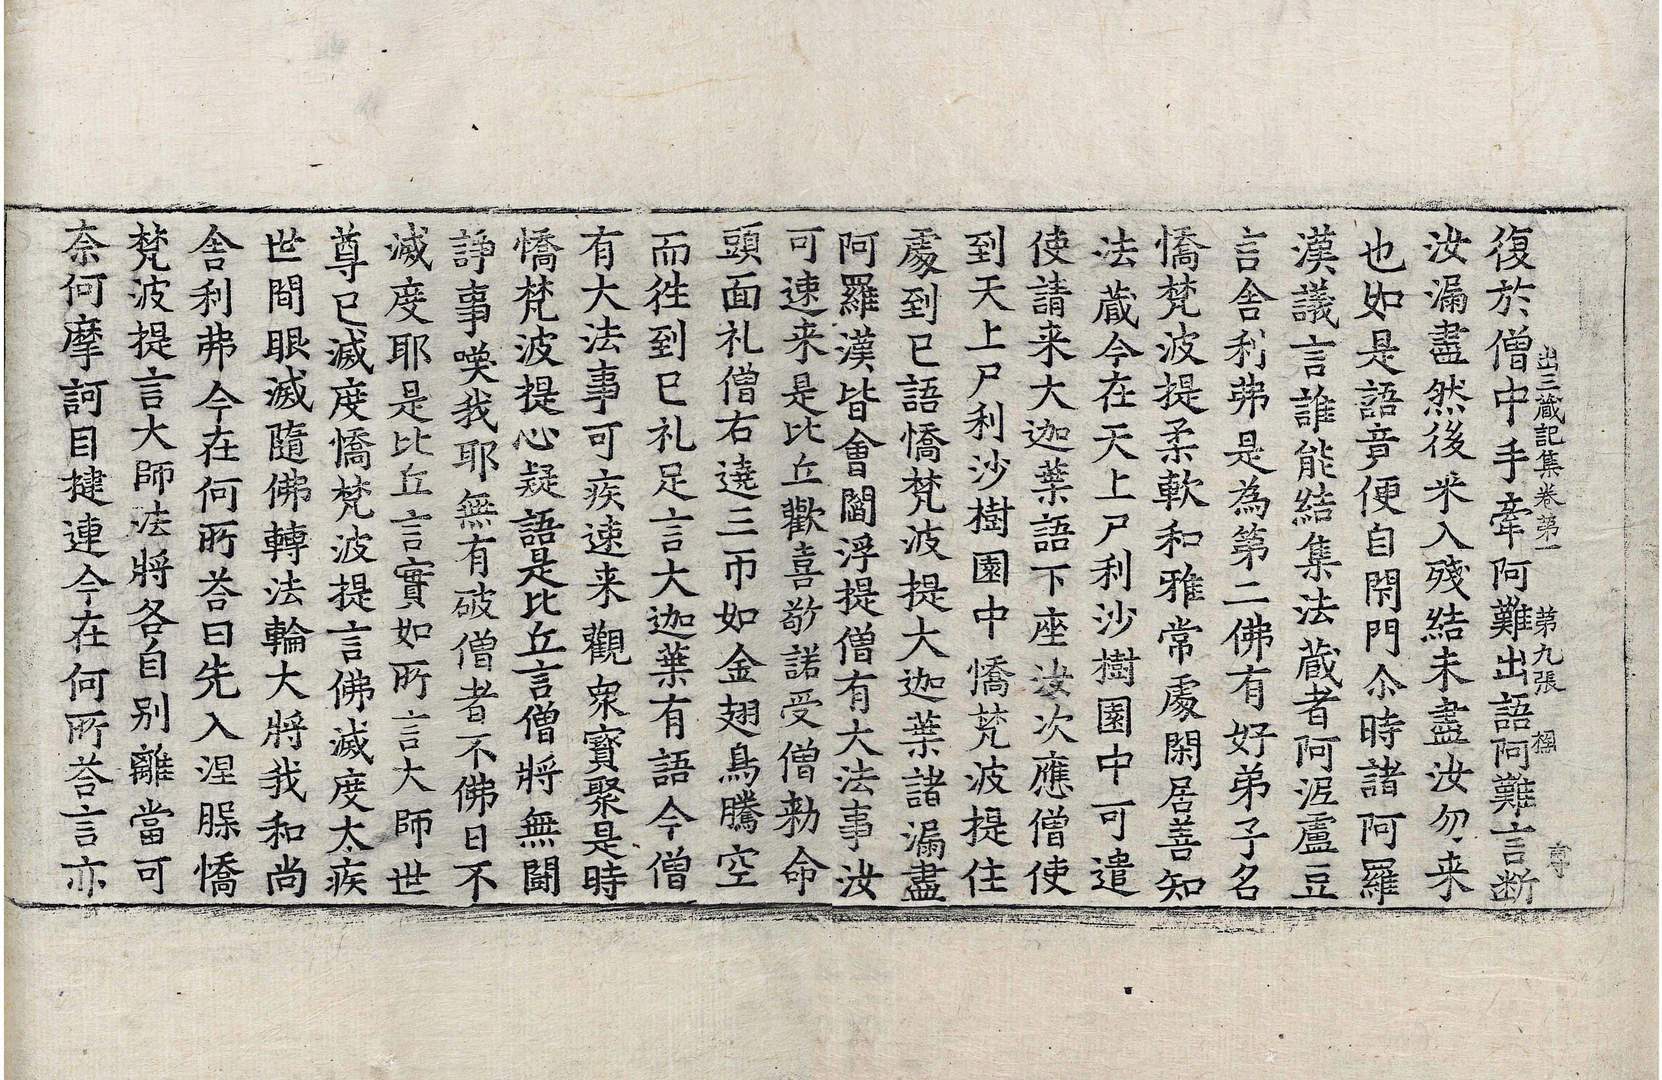 出三蔵記集卷第一 第九張 尊
復於僧中手牽阿難出語阿難言断
汝漏盡然後来入殘結未盡汝勿来
也如是語竟便自閇門尒時諸阿羅
漢議言誰能結集法蔵者阿泥盧豆
言舍利弗是為第二佛有好弟子名
憍梵波提柔軟和雅常處閑居善知
法蔵今在天上尸利沙樹園中可遣
使請来大迦葉語下座汝次應僧使
到天上尸利沙樹園中憍梵波提住
處到已語憍梵波提大迦葉諸漏盡
阿羅漢皆會閻浮提僧有大法事汝
可速来是比丘歡喜敬諾受僧勑命
頭面礼僧右遶三帀如金翅鳥騰空
而徃到已礼足言大迦葉有語今僧
有大法事可疾速来觀衆寳聚是時
憍梵波提心疑語是比丘言僧將無鬪
諍事嘆我耶無有破僧者不佛日不
滅度耶是比丘言實如所言大師世
尊已滅度憍梵波提言佛滅度太疾
世間眼滅隨佛轉法輪大將我和尚
舍利弗今在何所荅曰先入涅槃憍
梵波提言大師法將各自別離當可
奈何摩訶目揵連今在何所荅言亦